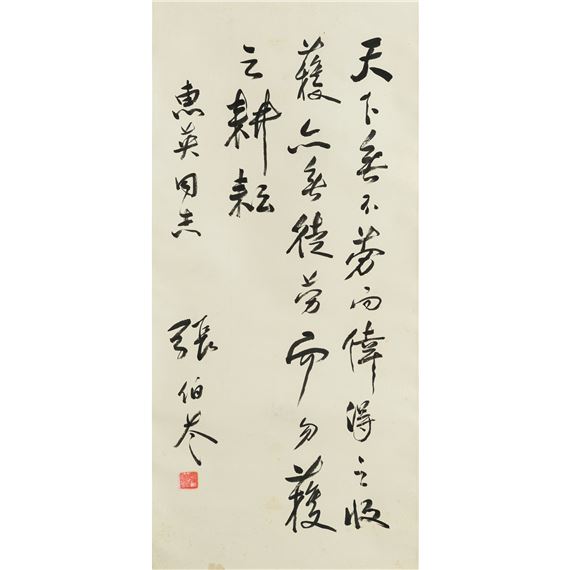 天下無不勞而倖得之收
穫亦無徒勞而勿穫
之耕耘
惠英同志
張伯苓